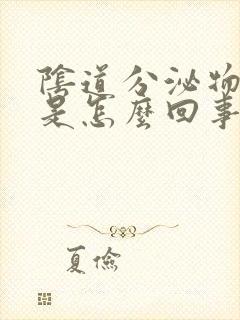 陰道分泌物
是怎麼回事
夏儉